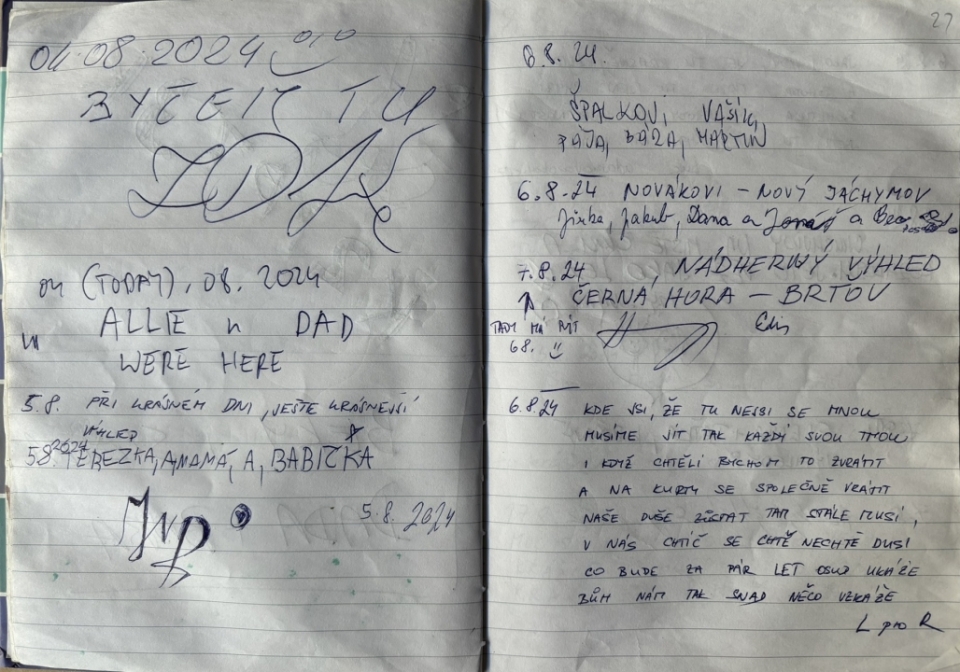 04.08.2024
TU
04 (TODAY), 08. 2024
ALLIE n DAD
WERE HERE
5.8. PŘI KRÁSNÉM DNI, JEŠTĚ KRÁSNEJŠÍ
VÝHLED
5.8 2024 TEREZKA, A MAMA, A, BABIČKA
5.8.2024
27
6.8.24.
ŠPALKOVI, VAŠÍK,
PÁJA, BÁRA, MARTIN
6.8.24 NOVÁKOVI – NOVÝ JÁCHYMOV
Jirka, Jakub, Dana a Jonáš a
7.8.24 NÁDHERNÝ VÝHLED
ČERNÁ HORA – BRŤOV
TADY MÁ BÝT
6.8.
6.8.24 KDE JSI, ŽE TU NEJSI SE MNOU
MUSÍME JÍT TAK KAŽDÝ SVOU TMOU
I KDYŽ CHTĚLI BYCHOM TO ZVRÁTIT
A NA KURTY SE SPOLEČNĚ VRÁTIT
NAŠE DUŠE ZŮSTAT TAM STÁLE MUSÍ,
V NÁS CHTÍČ SE CHTĚ NECHTĚ DUSÍ
CO BUDE ZA PÁR LET OSUD UKÁŽE
BŮH NÁM TAK SNAD NĚCO VZKÁŽE
L pro R